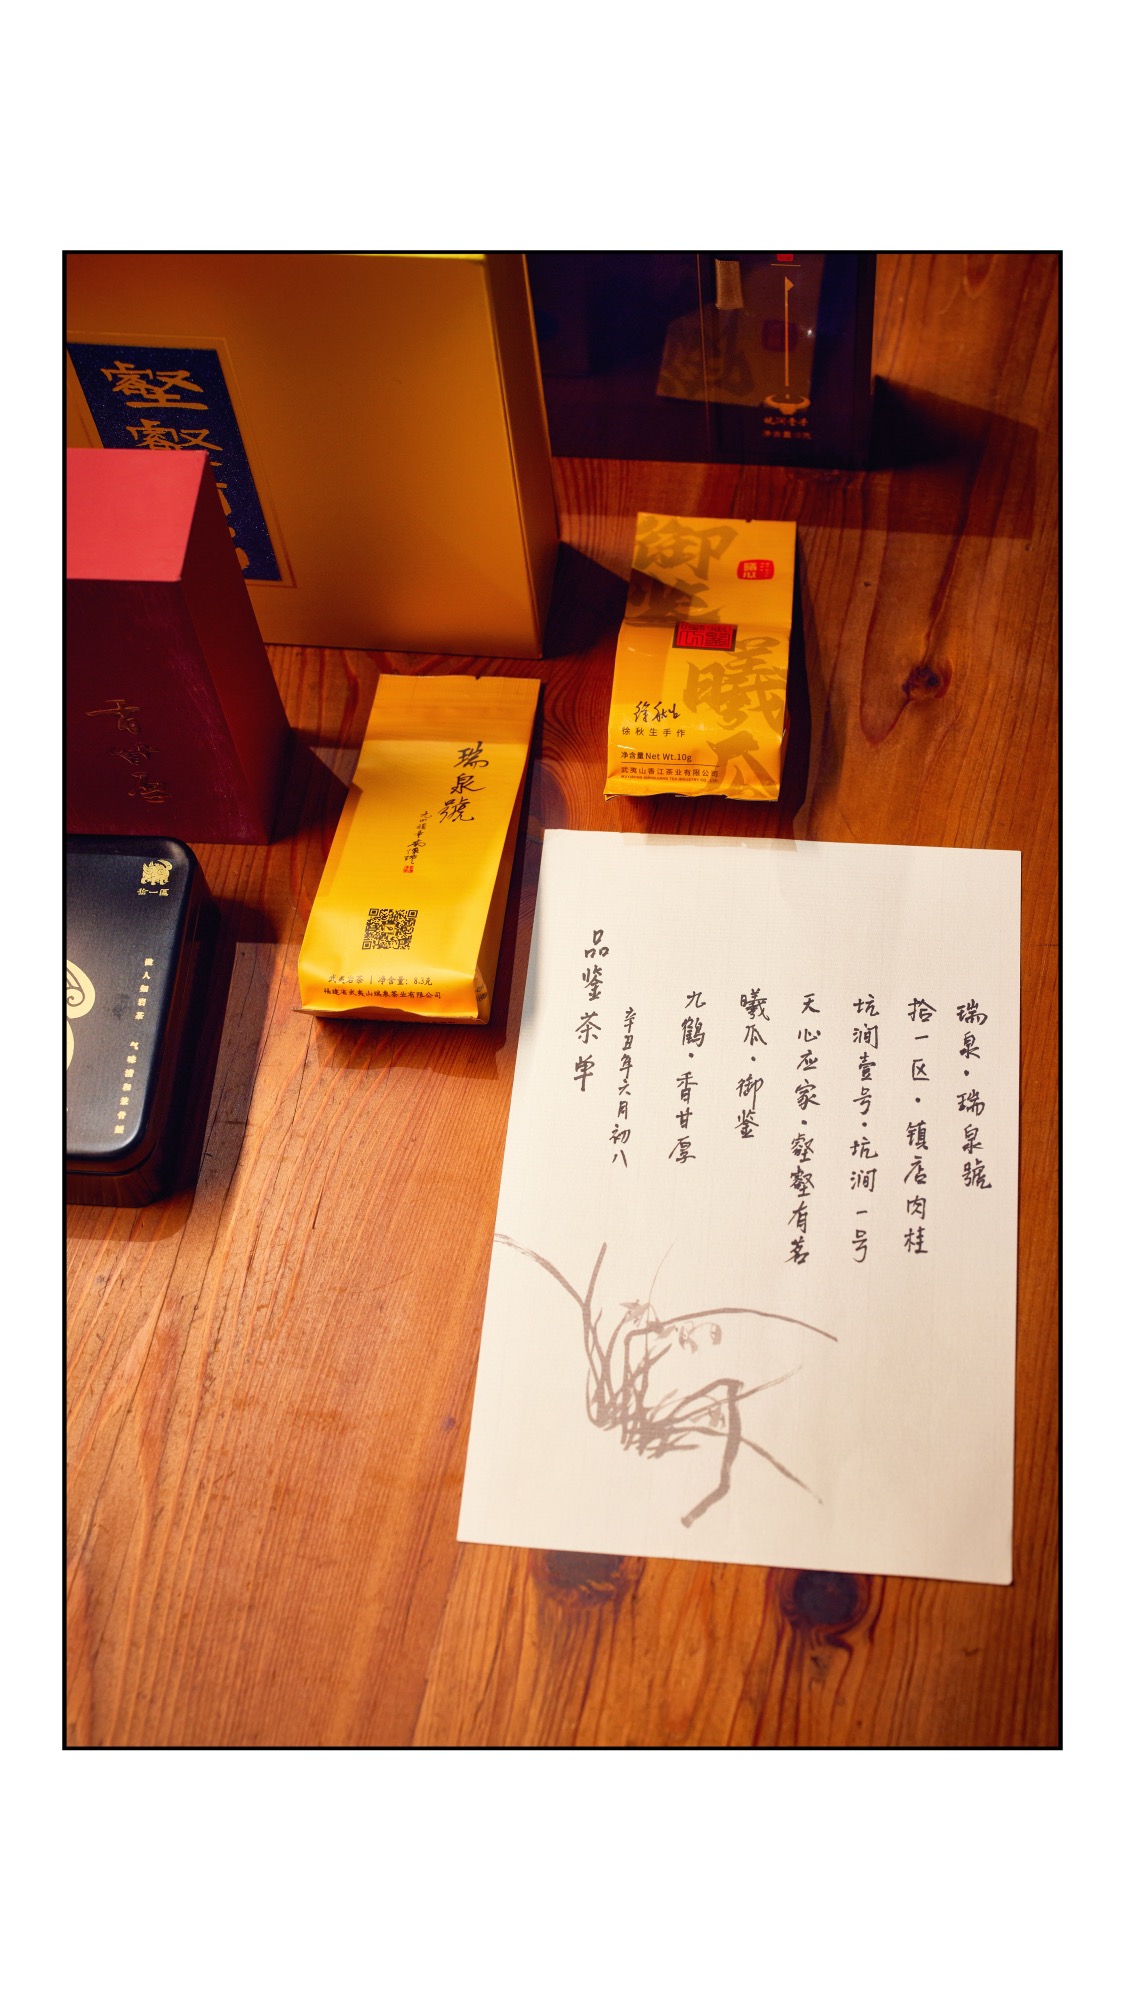 叡叡
御鉴
曦瓜
徐秋生
徐秋生手作
净含量Net Wt.10g
武夷山香江茶业有限公司
瑞泉號
武夷岩茶 | 净含量：8.3克
福建省武夷山瑞泉茶业有限公司
拾一區
坑涧壹号
品鉴茶单
辛丑年六月初八
九鹤·香甘厚
曦瓜·御鉴
天心应家·壑壑有茗
坑涧壹号·坑涧一号
拾一区·镇店肉桂
瑞泉·瑞泉號